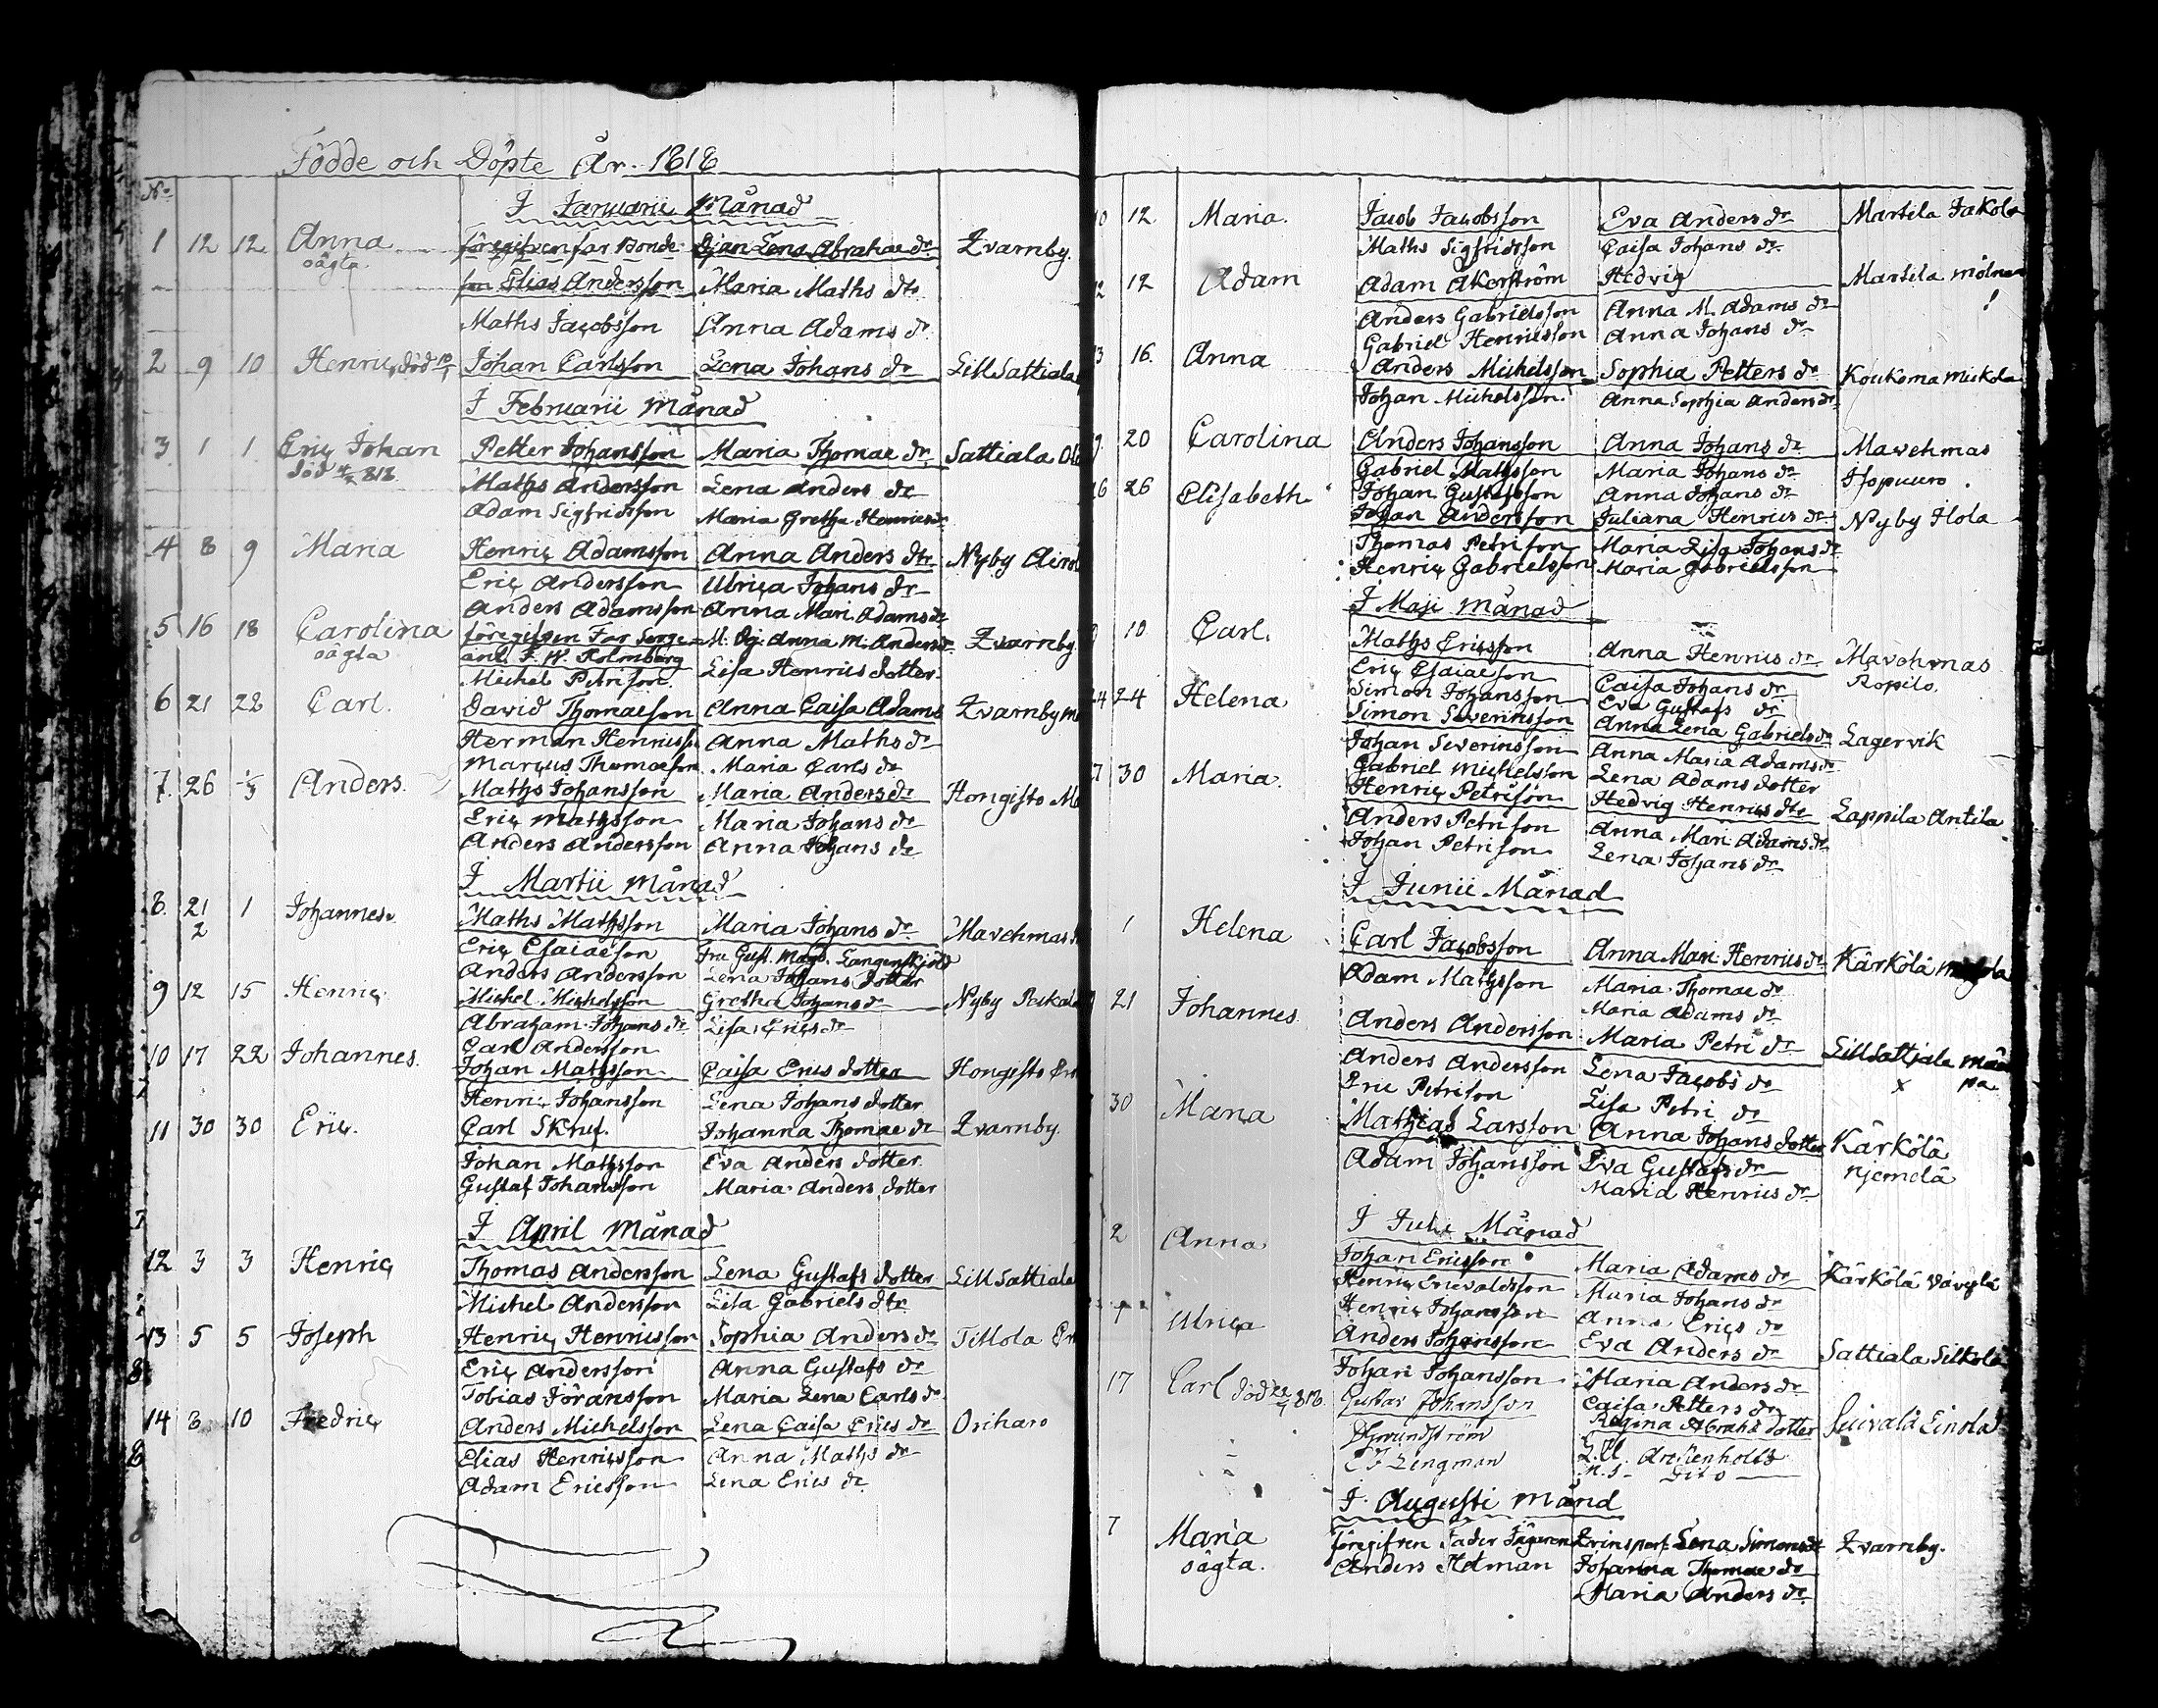 Födde och Döpte År. 1818
No
I Januarii Månad
1 12 12 Anna föregifven far Bonde Pjan Lena Abrahae dr Qvarnby.
oägta. son Elias Andersson Maria Maths dtr
Maths Jacobsson Anna Adams dr
2 9 10 Henric, död Johan Carlsson Lena Johans dr LillSattiala
I Februarii Månad
3 1 1 Eric Johan Petter Johansson Maria Thomae dr Sattiala
död 818. Maths Andersson Lena Anders dr
Adam Sigfridsson Maria Gretha Henricsdr
4 8 9 Maria Henric Adamsson Anna Anders dtr Nyby
Eric Andersson Ulrica Johans dr
Anders Adamsson Anna Mari Adams dr
5 16 18 Carolina föregifven Far Serge- Anna M. Andersdr Qvarnby.
oägta ant. F. W. Holmberg Lisa Henrics dotter
Michel Petrison.
6 21 22 Carl. David Thomaeson Anna Caisa Adams Qvarnby
Herman Henricsson Anna Maths dr
Marcus Thomaeson Maria Carls dr
7. 26 Anders. Maths Johansson Maria Anders dr Hongisto
Eric Mathsson Maria Johans dr
Anders Andersson Anna Johans dr
I Martii Månad
8. 21 1 Johannes. Maths Mathsson Maria Johans dr Mavehmas
2 Eric Esaiaeson Fru Gust. Magd. Langenskjöld
Anders Andersson Lena Johans dotter
9 12 15 Henric Michel Michelsson Gretha Johans dr Nyby
Abraham Johans dr Lisa Erics dr
Carl Andersson
10 17 22 Johannes. Johan Mathsson Caisa Erics dotter Hongisto
Henric Johansson Lena Johans dotter
11 30 30 Eric. Carl Johanna Thomae dr Qvarnby.
Johan Mathsson Eva Anders dotter
Gustaf Johansson Maria Anders dotter
I April Månad
12 3 3 Henric Thomas Andersson Lena Gustafs dotter LillSattiala
Michel Andersson Lisa Gabriels dtr
13 5 5 Joseph Henric Henricsson Sophia Anders dr Tillola
Eric Andersson Anna Gustafs dr
Tobias Göransson Maria Lena Carls dr
14 8 10 Fredric Anders Michelsson Lena Caisa Erics dr Oriharo
Elias Henricsson Anna Maths dr
Adam Ericsson Lena Erics dr
12 Maria. Jacob Jacobsson Eva Anders dr Martila Jakola
Maths Sigfridsson Caisa Johans dr
12 Adam Adam Åkerström Hedvig Martila
Anders Gabrielsson Anna M. Adams dr
Gabriel Henricsson Anna Johans dr
16. Anna Anders Michelsson Sophia Petters dr Koukoma Mickola
Johan Michelsson Anna Sophia Anders dr
20 Carolina Anders Johansson Anna Johans dr Mavehmas
Gabriel Mathsson Maria Johans dr Isopuuro.
26 Elisabeth Johan Gustafsson Anna Johans dr
Johan Andersson Juliana Henrics dr Nyby Ilola
Thomas Petrison Maria Lisa Johans dr
Henric Gabrielsson Maria Gabrielsson
I Maji Månad
10 Carl. Maths Ericsson Anna Henrics dr Mavehmas
Eric Esaiaeson Caisa Johans dr Ropilo.
24 Helena Simon Johansson Eva Gustafs dr
Simon Severinsson Anna Lena Gabriels dr Lagervik
Johan Severinsson Anna Maria Adams dr
30 Maria. Gabriel Michelsson Lena Adams dotter
Henric Petrison Hedvig Henrics dtr Lappila Antila
Anders Petrison Anna Mari Adams dr
Johan Petrison Lena Johans dr
I Junii Månad
1 Helena Carl Jacobsson Anna Mari Henrics dr Kärkölä
Adam Mathsson Maria Thomae dr
21 Johannes Maria Adams dr
Anders Andersson Maria Petri dr LillSattiala
Anders Andersson Lena Jacobs dr x
Eric Petrison Lisa Petri dr
30 Maria Mathias Larsson Anna Johans dotter Kärkölä
Adam Johansson Eva Gustafs dr Njemelä
Maria Henrics dr
I Julii Månad
2 Anna Johan Ericsson Maria Adams dr Kärkölä
Henric Ericvaldsson Maria Johans dr
Henric Johansson Anna Erics dr
Ulrica Anders Johansson Eva Anders dr Sattiala Silkolä
Johan Johansson Maria Anders dr
17 Carl död 818. Gustav Johansson Caisa Petters dr
Grundström Regina Abrahs dotter Einola
Lingman Archenholtz
dito
I Augusti Månd
7 Maria föregifven Fader Jägaren Lena Simonsdt Qvarnby.
oägta. Anders Johanna Thomae dr
Maria Anders dr